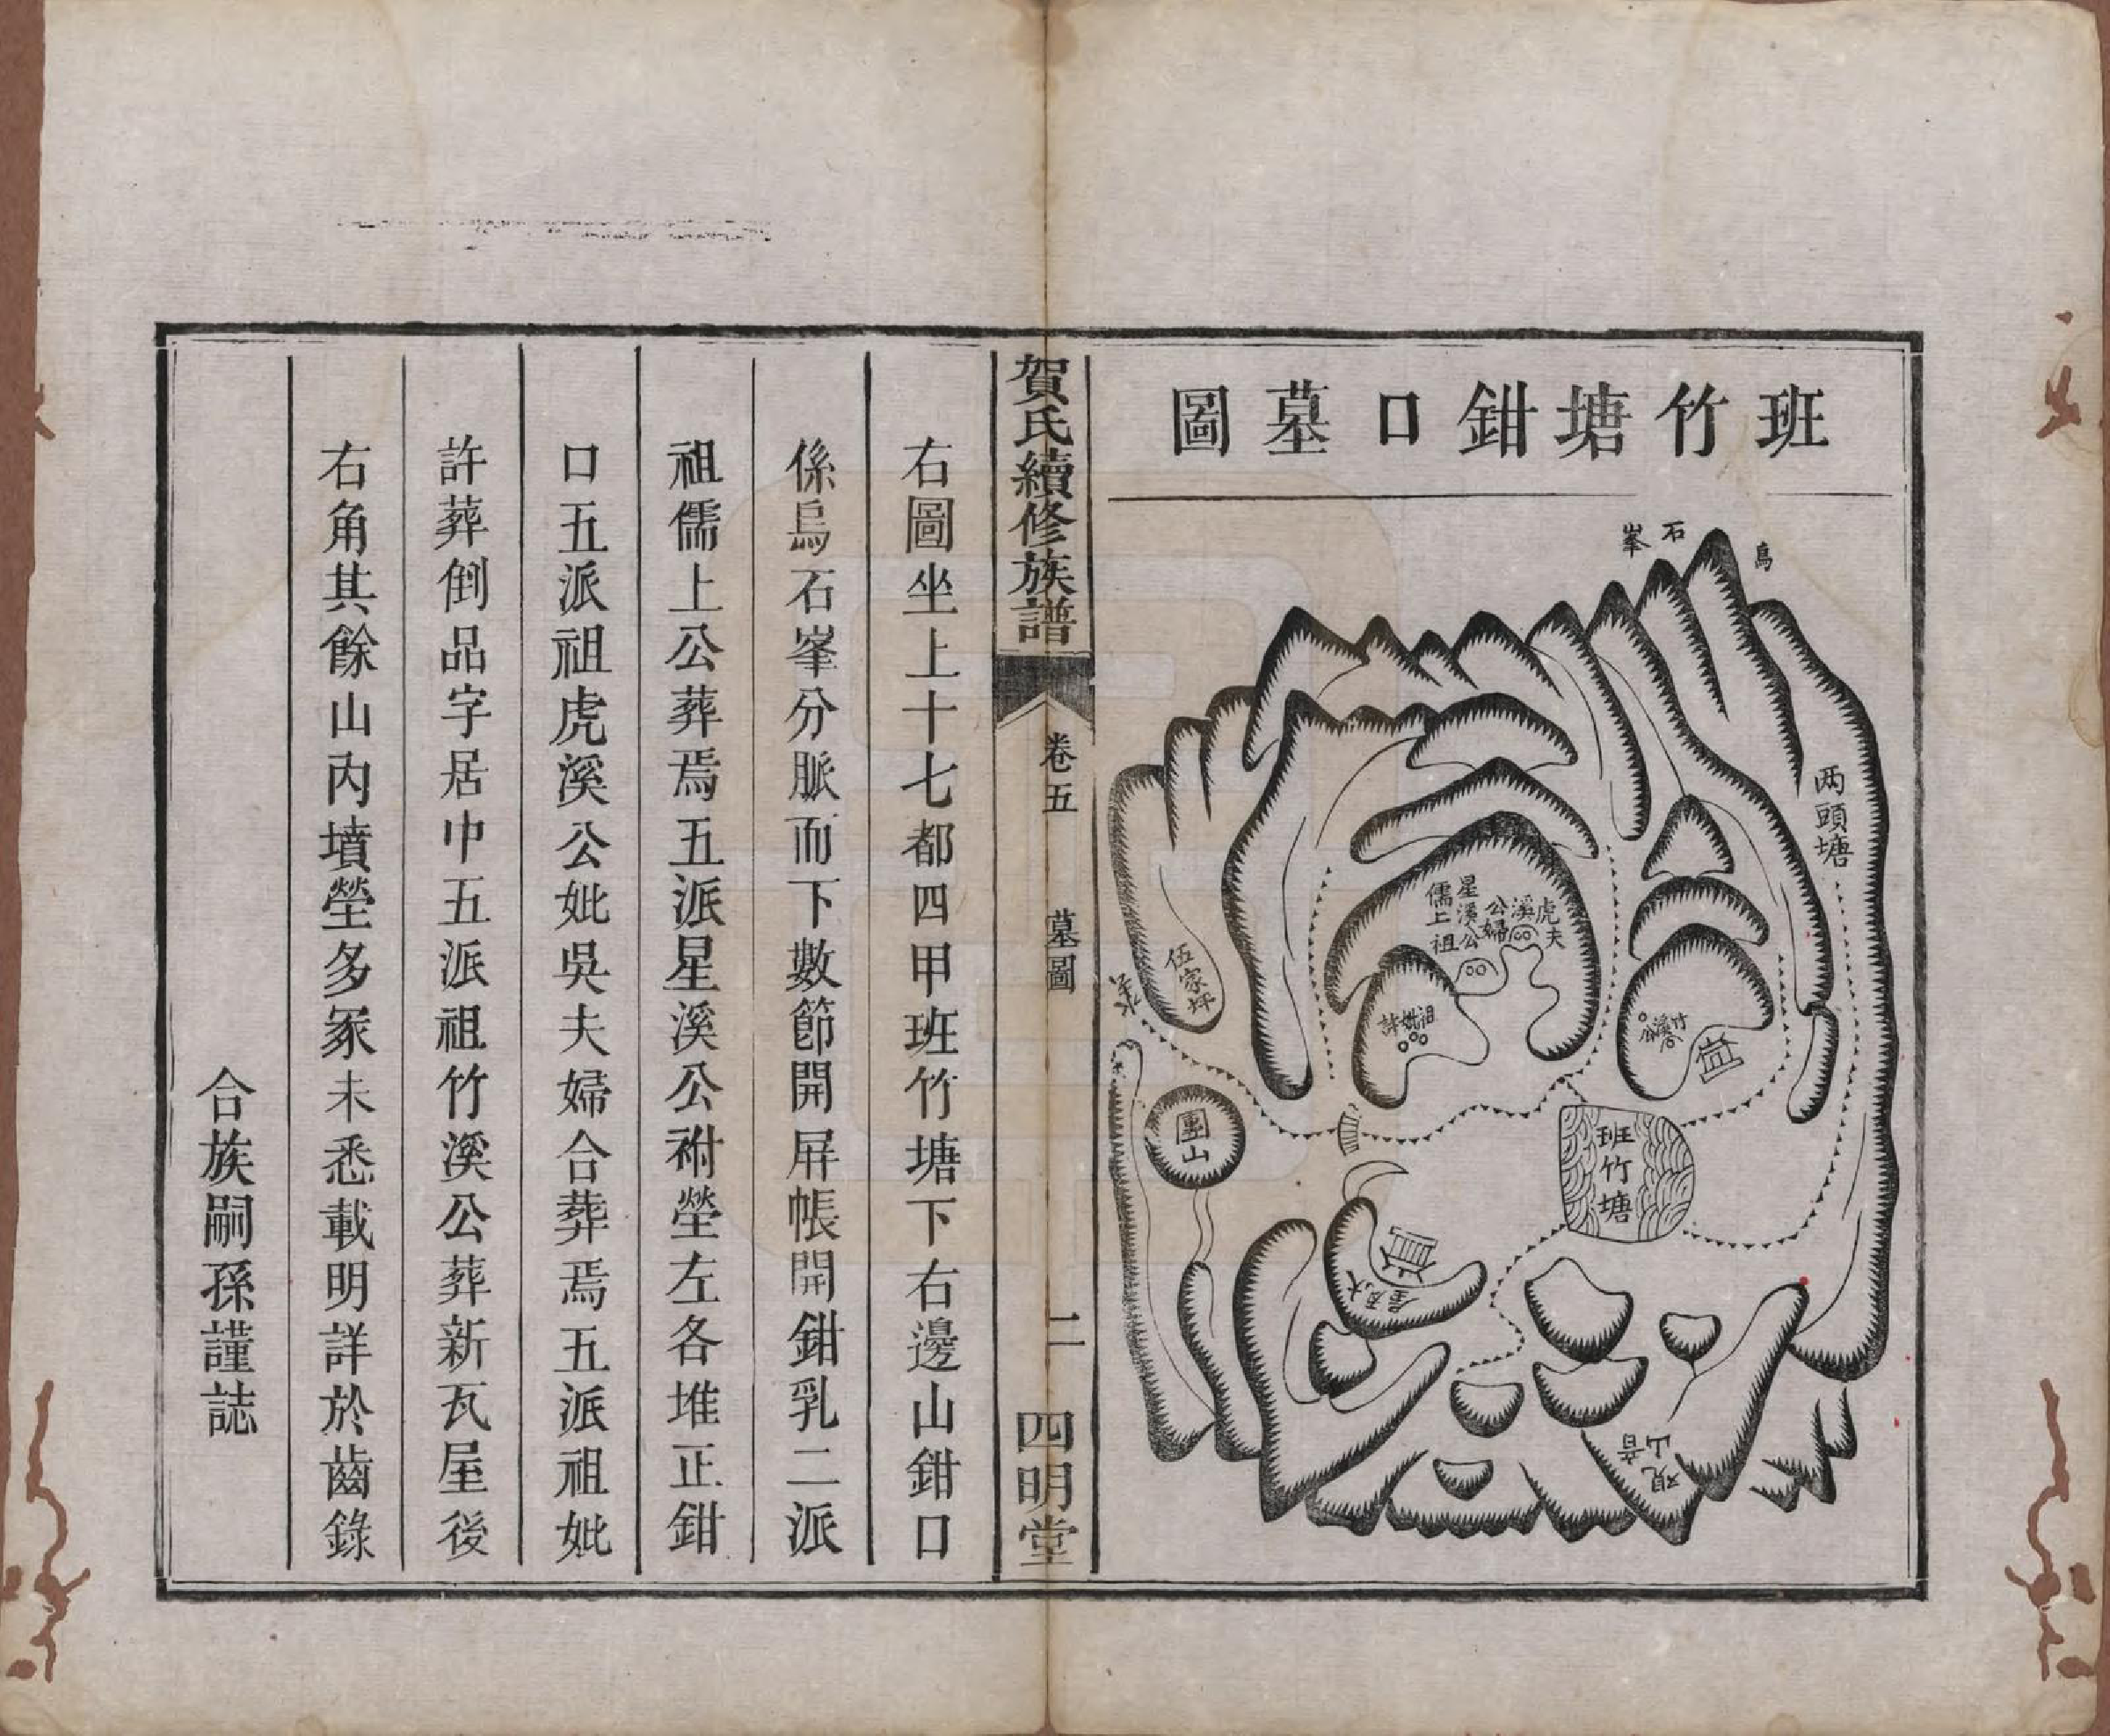 班竹塘鉗口墓圖
烏石峯
两頭塘
虎溪公夫婦
星溪公
儒上祖
祖妣許
竹溪公
伍家坪
團山
班竹塘
觀音山
賀氏續修族譜
卷五
墓圖
二
四明堂
右圖坐上十七都四甲班竹塘下右邊山鉗口
係烏石峯分脈而下數節開屏帳開鉗乳二派
祖儒上公葬焉五派星溪公祔塋左各堆正鉗
口五派祖虎溪公妣吳夫婦合葬焉五派祖妣
許葬倒品字居中五派祖竹溪公葬新瓦屋後
右角其餘山內墳塋多冢未悉載明詳於齒錄
合族嗣孫謹誌